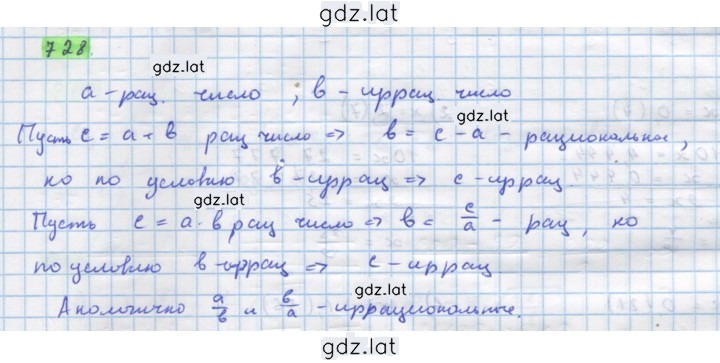 gdz.lat
728.
gdz.lat
а – рац. число ; в – иррац. число
gdz.lat
Пусть с = а + в рац число => в = с – а – рациональное,
но по условию в – иррац => с – иррац.
gdz.lat
Пусть с = а · в рац число => в = с/а – рац, но
по условию в – иррац => с – иррац
gdz.lat
Аналогично а/в и в/а – иррациональные.
gdz.lat